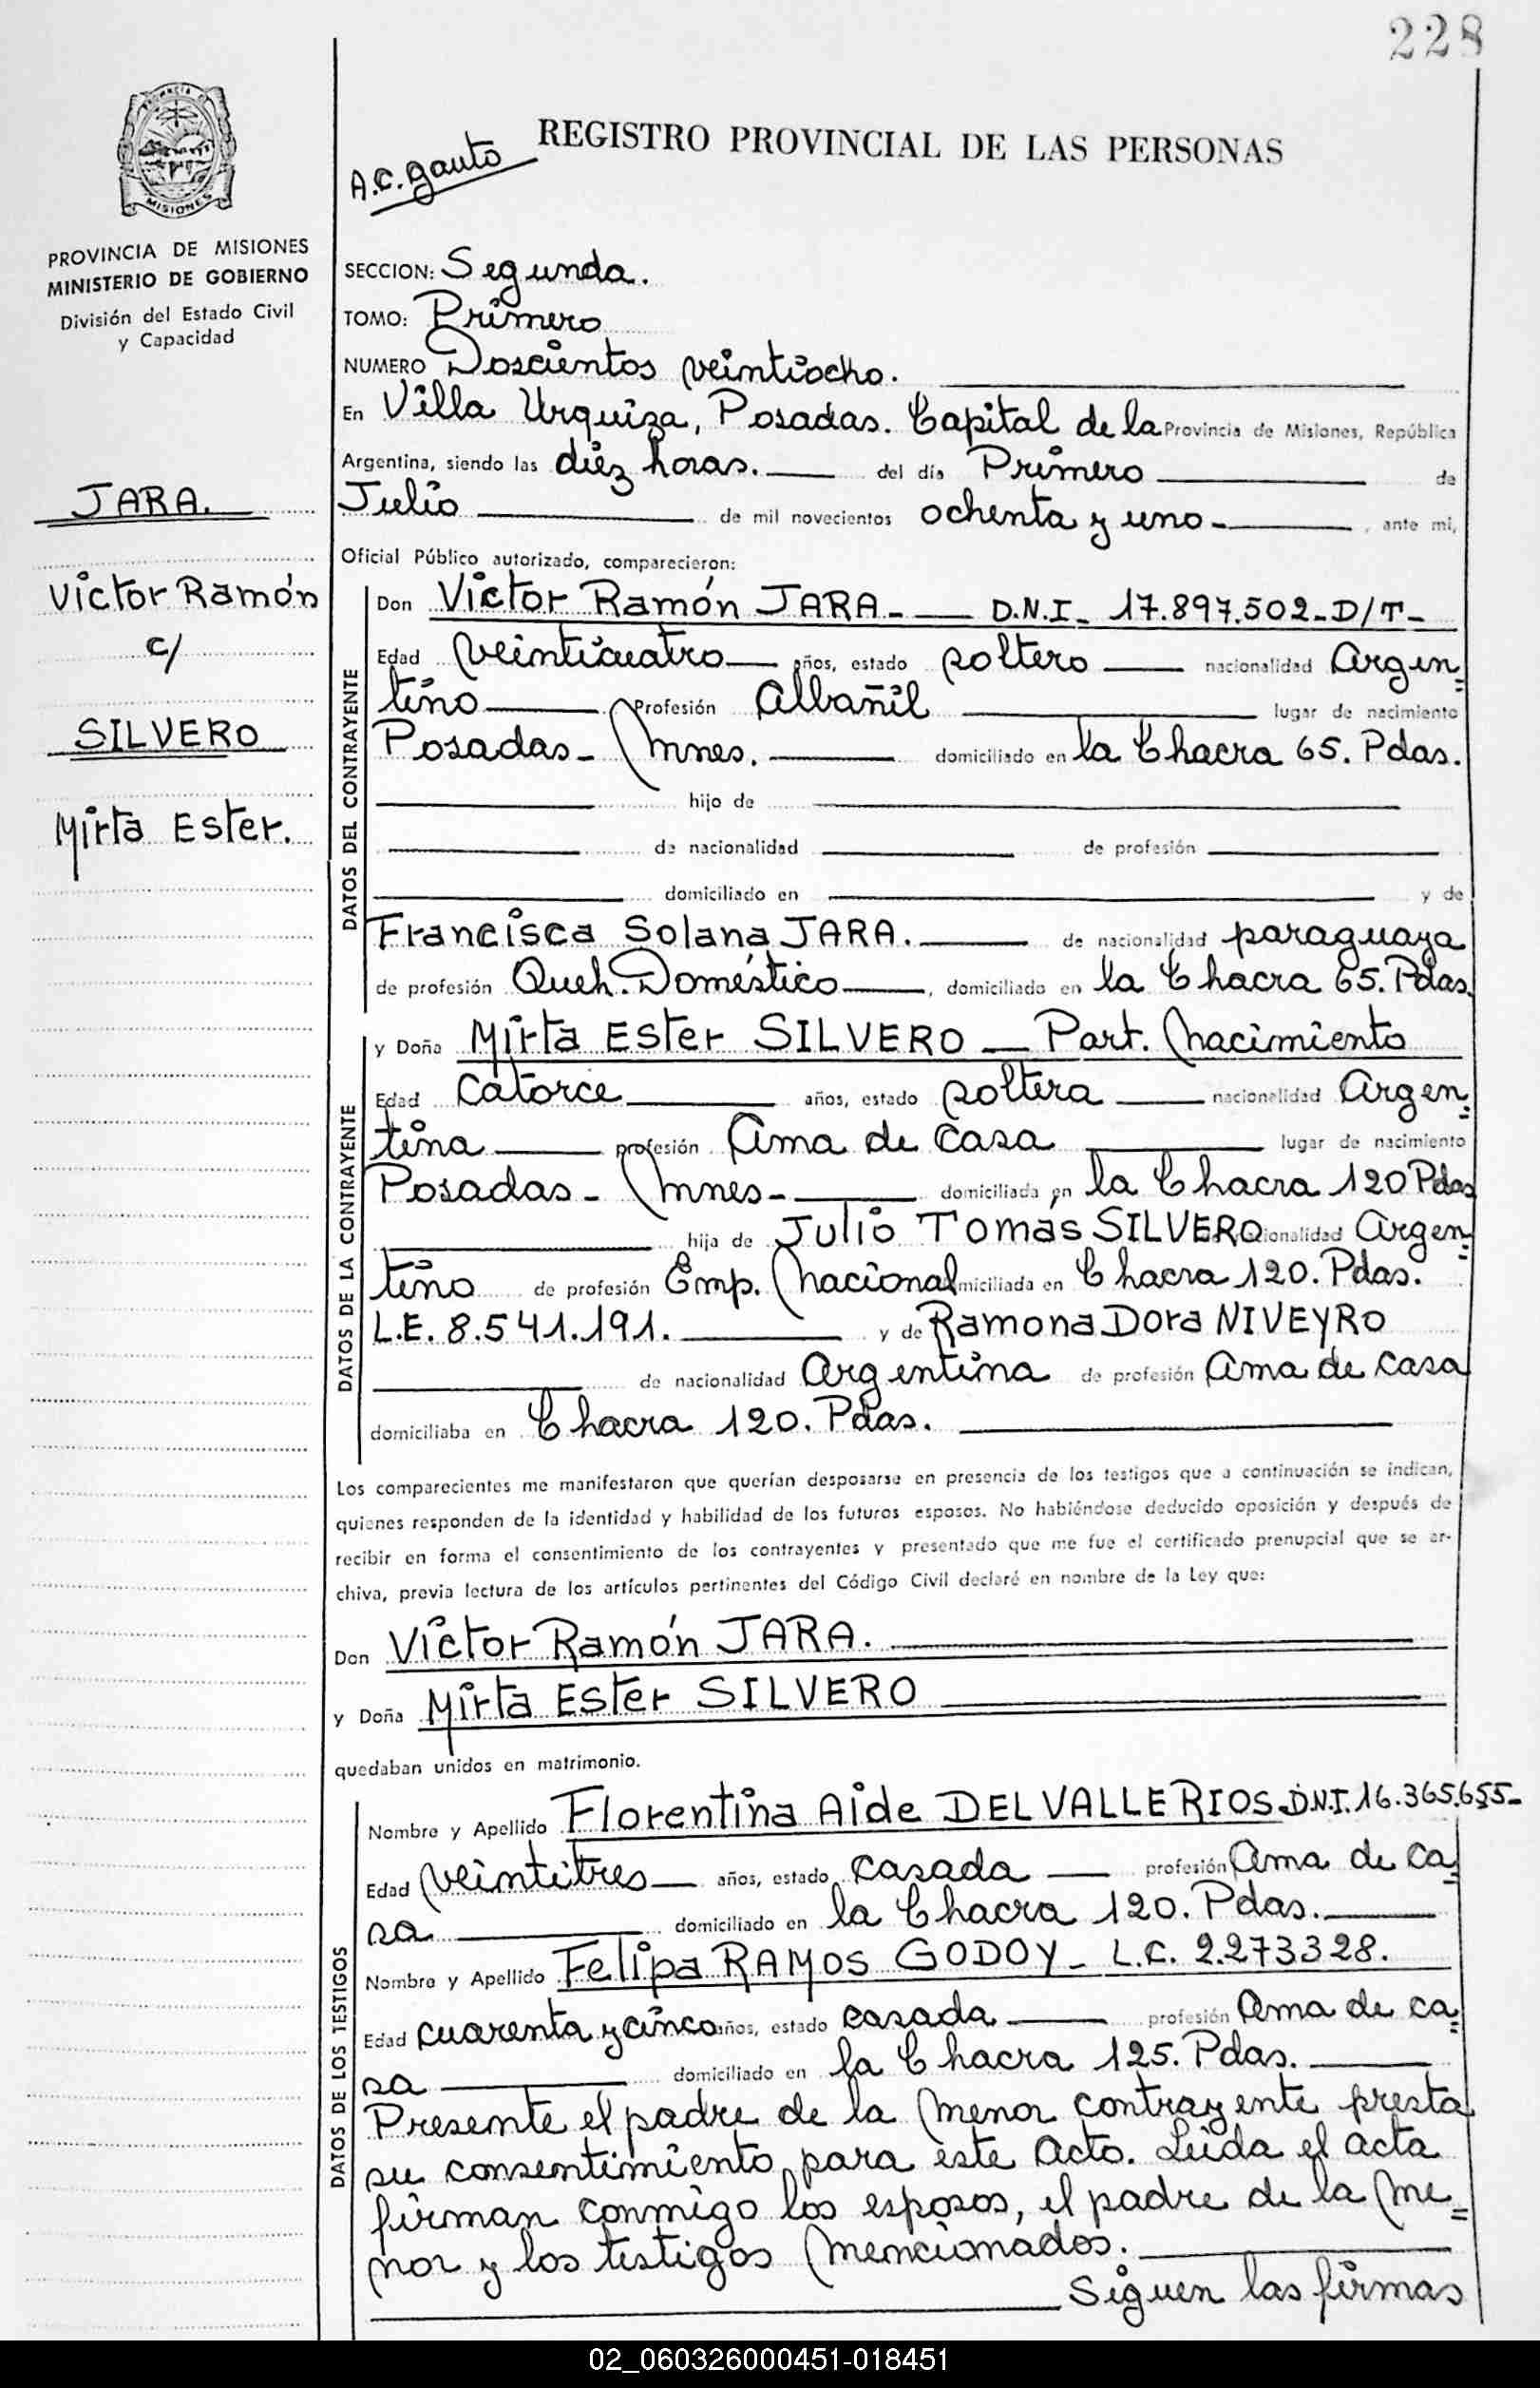 228
REGISTRO PROVINCIAL DE LAS PERSONAS
A.C. Gauto
PROVINCIA DE
MISIONES
PROVINCIA DE MISIONES
MINISTERIO DE GOBIERNO
División del Estado Civil
y Capacidad
JARA.
Victor Ramón
c/
SILVERO
Mirta Ester.
SECCION: Segunda.
TOMO: Primero
NUMERO Doscientos veintiocho.
En Villa Urquiza, Posadas. Capital de la Provincia de Misiones, República
Argentina, siendo las diez horas. del día Primero de
Julio de mil novecientos ochenta y uno- , ante mi,
Oficial Público autorizado, comparecieron:
DATOS DEL CONTRAYENTE
Don Victor Ramón JARA- D.N.I- 17.897.502-D/T-
Edad veinticuatro años, estado soltero nacionalidad Argen=
tino Profesión Albañil lugar de nacimiento
Posadas- Mnes. domiciliado en la Chacra 65. Pdas.
hijo de
de nacionalidad de profesión
domiciliado en y de
Francisca Solana JARA. de nacionalidad paraguaya
de profesión Queh. Doméstico , domiciliada en la Chacra 65. Pdas.
DATOS DE LA CONTRAYENTE
y Doña Mirta Ester SILVERO - Part. Nacimiento
Edad Catorce años, estado soltera nacionalidad Argen=
tina profesión Ama de Casa lugar de nacimiento
Posadas- Mnes- domiciliada en la Chacra 120 Pdas
hija de Julio Tomás SILVERO nacionalidad Argen=
tino de profesión Emp. Nacional miciliada en Chacra 120. Pdas.
L.E. 8.541.191. y de Ramona Dora NIVEYRO
de nacionalidad Argentina de profesión Ama de casa
domiciliaba en Chacra 120. Pdas.
Los comparecientes me manifestaron que querían desposarse en presencia de los testigos que a continuación se indican,
quienes responden de la identidad y habilidad de los futuros esposos. No habiéndose deducido oposición y después de
recibir en forma el consentimiento de los contrayentes y presentado que me fue el certificado prenupcial que se ar-
chiva, previa lectura de los artículos pertinentes del Código Civil declaré en nombre de la Ley que:
Don Victor Ramón JARA.
y Doña Mirta Ester SILVERO
quedaban unidos en matrimonio.
DATOS DE LOS TESTIGOS
Nombre y Apellido Florentina Aide DEL VALLE RIOS D.N.I. 16.365.655-
Edad veintitres años, estado casada profesión Ama de ca=
sa domiciliado en la Chacra 120. Pdas.
Nombre y Apellido Felipa RAMOS GODOY- L.C. 2.273328.
Edad cuarenta y cinco años, estado casada profesión Ama de ca=
sa domiciliado en la Chacra 125. Pdas.
Presente el padre de la menor contrayente presta
su consentimiento para este Acto. Leida el acta
firman conmigo los esposos, el padre de la me=
nor y los testigos mencionados.
Siguen las firmas
02_060326000451-018451